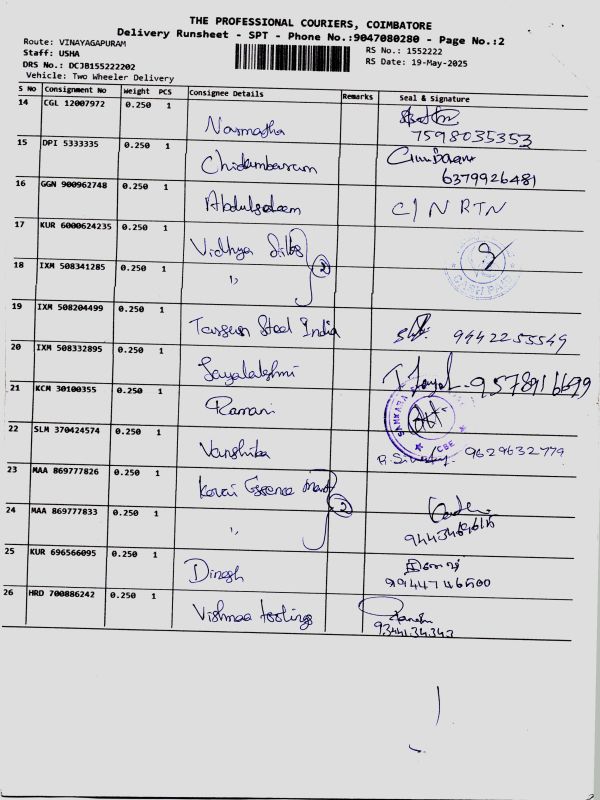 THE PROFESSIONAL COURIERS, COIMBATORE
Delivery Runsheet - SPT - Phone No.:9047080280 - Page No.:2
Route: VINAYAGAPURAM
RS No.: 1552222
Staff: USHA
RS Date: 19-May-2025
DRS No.: DCJB155222202
Vehicle: Two Wheeler Delivery
S No Consignment No Weight PCS Consignee Details Remarks Seal & Signature
14 CGL 12007972 0.250 1
Narmadha 7598035353
15 DPI 5333335 0.250 1
Chidambaram
6379926481
16 GGN 900962748 0.250 1
Abdulsaleem C/N RTN
17 KUR 6000624235 0.250 1
Vidhya Silks
2
18 IXM 508341285 0.250 1
"
CASH PAID
19 IXM 508204499 0.250 1
Steel India 9442255549
20 IXM 508332895 0.250 1
Jayalakshmi 9578916699
21 KCM 30100355 0.250 1
Ramani
SANKARA
CBE
22 SLM 370424574 0.250 1
Vanshika 9629632779
23 MAA 869777826 0.250 1
Kovai Essence Mart
2
24 MAA 869777833 0.250 1
"
25 KUR 696566095 0.250 1
Dinesh 9944746500
26 HRD 700886242 0.250 1
Vishmaa toolings
9344134343